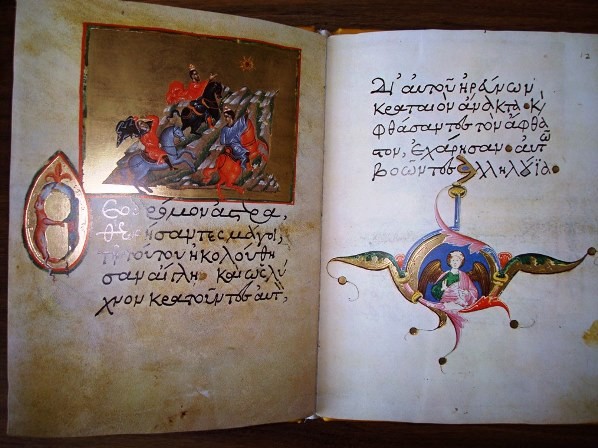 Θεοδρόμον ἀστέρα,
θεωρήσαντες μάγοι,
τῇ τούτου ἠκολούθη
σαν αἴγλη· καὶ ὡς λύ
χνον κρατοῦντες αὐτ,
Δι' αὐτοῦ ἠρεύνων
κραταιὸν ἄνακτα· κ
φθάσαντες τὸν ἄφθα
στον, ἐχάρησαν αὐτῶ
βοῶντες ἀλληλούϊα·